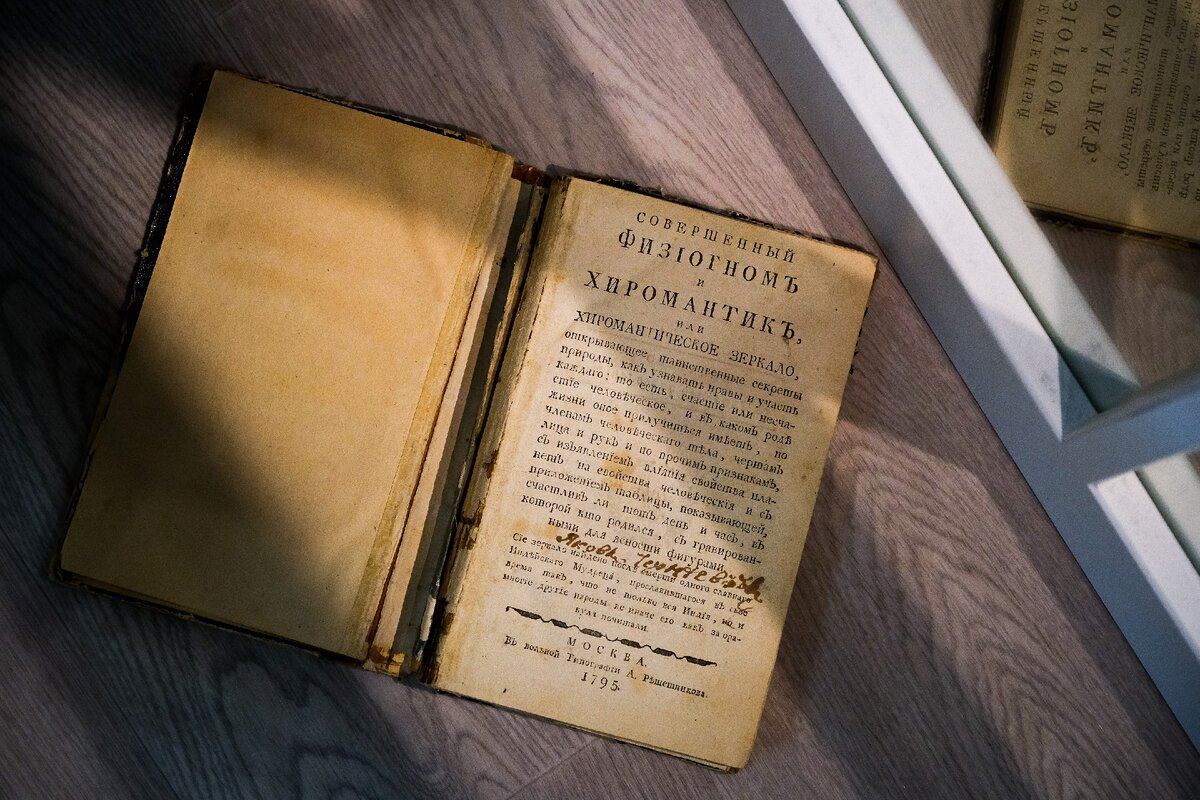 СОВЕРШЕННЫЙ
ФИЗІОГНОМЪ
и
ХИРОМАНТИКЪ,
ИЛИ
ХИРОМАНТИЧЕСКОЕ ЗЕРКАЛО,
открывающее таинственные секреты
природы, какъ узнавать нравы и участь
каждаго; то есть, счастіе или несча-
стіе человѣческое, и въ какомъ родѣ
жизни оное прилучиться имѣетъ, по
членамъ человѣческаго тѣла, чертамъ
лица и рукъ и по прочимъ признакамъ,
съ изъявленіемъ вліянія свойства пла-
нетъ на свойства человѣческія и съ
приложеніемъ таблицы, показывающей,
счастливъ ли тотъ день и часъ, въ
которой кто родился, съ гравирован-
ными для ясности фигурами.
Яковъ
Сіе зеркало найдено послѣ смерти одного славнаго
Индѣйскаго Мудреца, прославившагося въ свое
время такъ, что не только вся Индія, но и
многіе другіе народы не иначе его какъ за ора-
кула почитали.
МОСКВА.
Въ вольной Типографіи А. Рѣшетникова.
1795.
СОВЕРШЕННЫЙ
ФИЗІОГНОМЪ
и
ХИРОМАНТИКЪ,
ИЛИ
ХИРОМАНТИЧЕСКОЕ ЗЕРКАЛО,